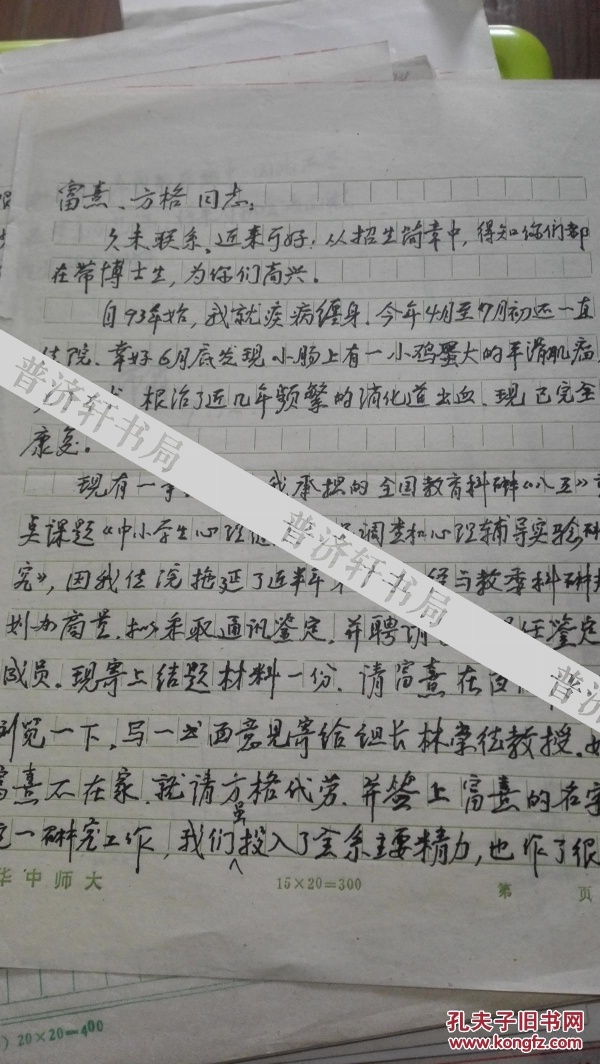 富熹、方格同志:
久未联系,近来可好。从招生简章中,得知你们都
在带博士生,为你们高兴。
自93年始,我就疾病缠身,今年4月至7月初还一直
住院。幸好6月底发现小肠上有一小鸡蛋大的平滑肌瘤,
根治了近几年频繁的消化道出血,现已完全
康复。
现有一事 我承担的全国教育科研《八五》重
点课题《中小学生心理 调查和心理辅导实验研
究》,因我住院拖延了近半年 经与教委科研规
划办商量,拟采取通讯鉴定,并聘请 任鉴定
成员。现寄上结题材料一份,请富熹在百
浏览一下,写一书面意见寄给组长林崇德教授。如
富熹不在家,就请方格代劳,并签上富熹的名字
这一研究工作,我们虽投入了全系主要精力,也作了很
华中师大
15×20=300
第 页
20×20=400
普济轩书局
普济轩书局
普济
孔夫子旧书网
www.kongfz.com